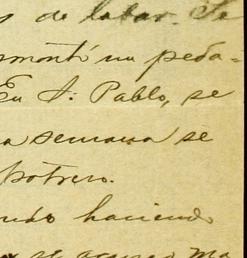 de labar. Se
smonté un peda-
En S. Pablo, se
a semana se
potrero.
ndo haciendo